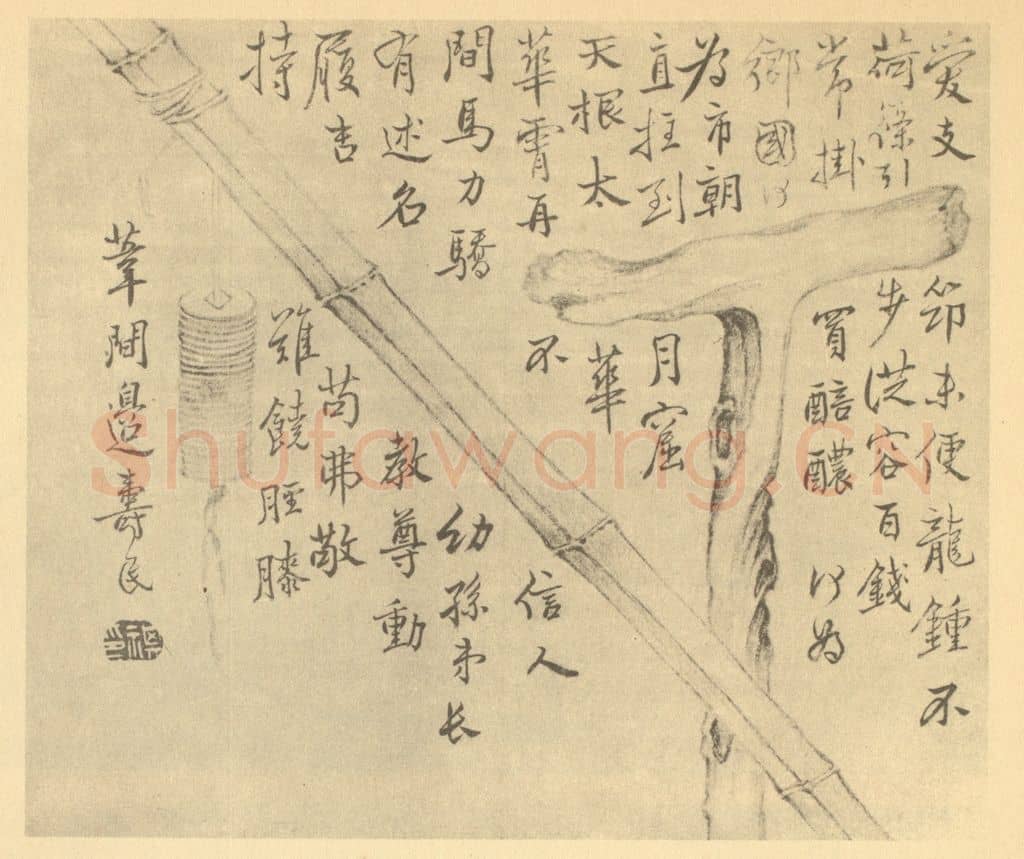 愛支笻未便龍鍾不
荷篠引步從容百錢
常掛買醅醲何為
鄉國何
為市朝
直拄到月窟
天根太華
華霄再不信人
間馬力驕幼孫弟长
有述名教尊動
履吉苟弗敬
持難饒脛膝
葦間邊壽民
Shufawang.CN